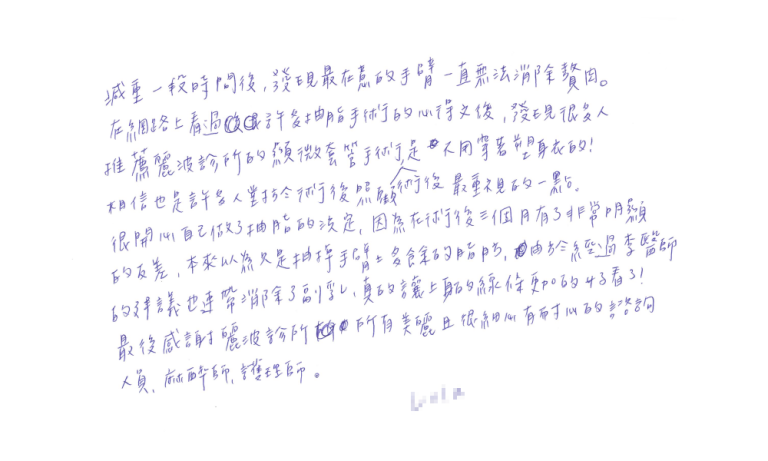 減重一段時間後,發現最在意的手臂一直無法消除贅肉。
在網路上看過許多抽脂手術的心得文後,發現很多人
推薦麗波診所的顯微套管手術是不用穿著塑身衣的!
相信也是許多人對於術後照顧術後最重視的一點。
很開心自己做了抽脂的決定,因為在術後三個月有了非常明顯
的反差,本來以為只是抽掉手臂上多餘的脂肪,由於經過李醫師
的建議也連帶消除了副乳,真的讓上身的線條更加的好看了!
最後感謝麗波診所所有美麗且很細心有耐心的諮詢
人員,麻醉師,護理師。